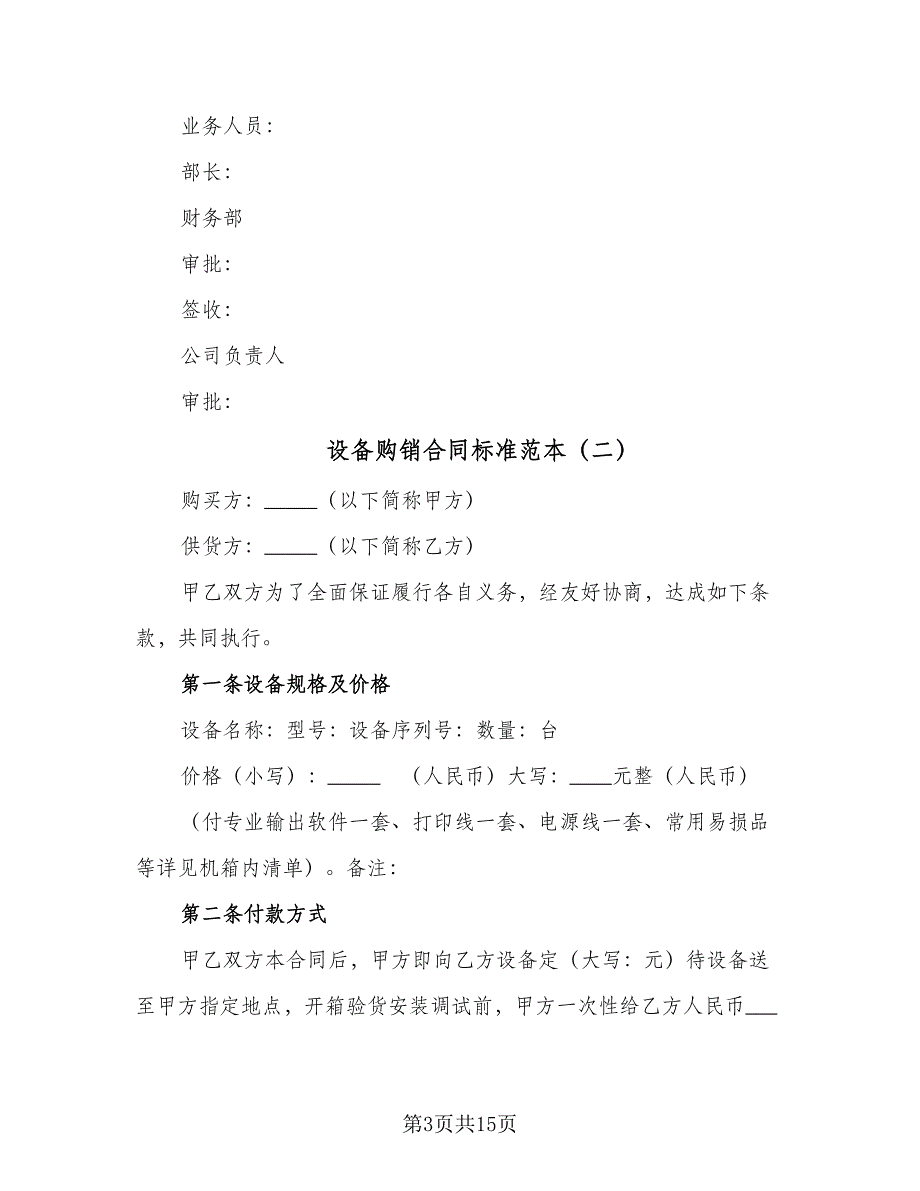 业务人员：
部长：
财务部
审批：
签收：
公司负责人
审批：
设备购销合同标准范本（二）
购买方：_____（以下简称甲方）
供货方：_____（以下简称乙方）
甲乙双方为了全面保证履行各自义务，经友好协商，达成如下条
款，共同执行。
第一条设备规格及价格
设备名称：型号：设备序列号：数量：台
价格（小写）：_____ （人民币）大写：____元整（人民币）
（付专业输出软件一套、打印线一套、电源线一套、常用易损品
等详见机箱内清单）。备注：
第二条付款方式
甲乙双方本合同后，甲方即向乙方设备定（大写：元）待设备送
至甲方指定地点，开箱验货安装调试前，甲方一次性给乙方人民币___
第3页共15页